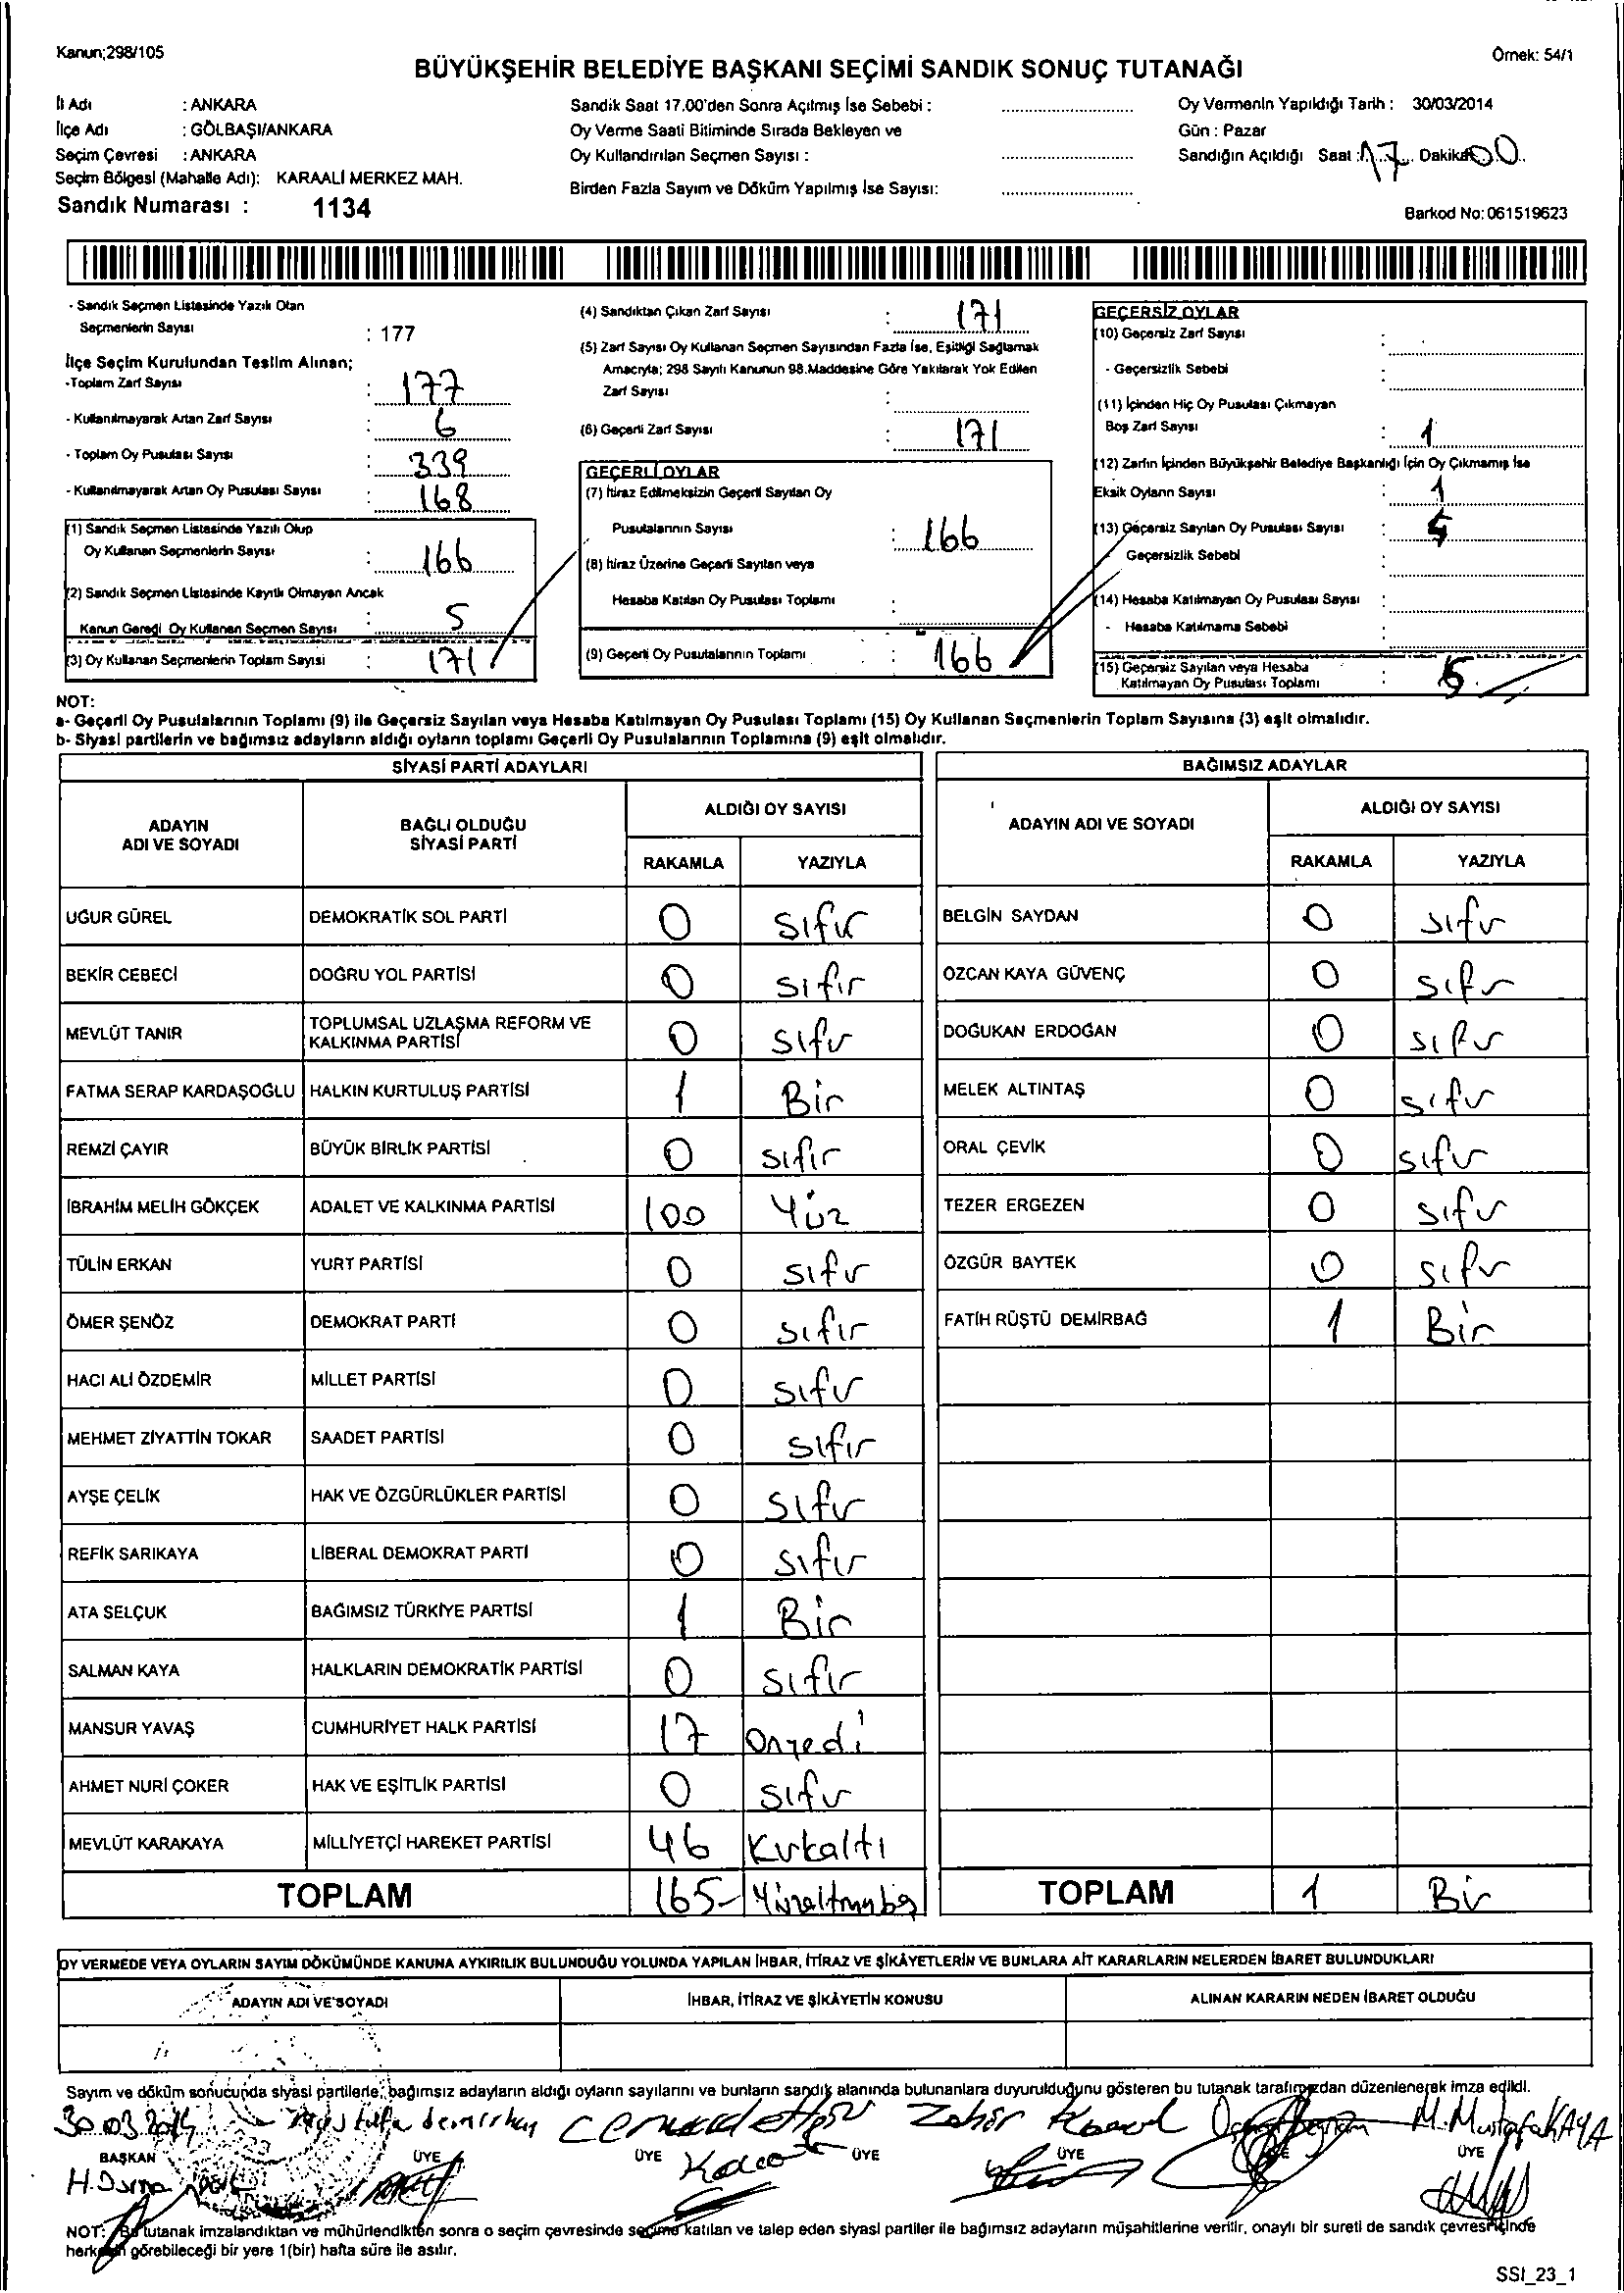 Kanun;298/105
Örnek: 54/1
BÜYÜKŞEHİR BELEDİYE BAŞKANI SEÇİMİ SANDIK SONUÇ TUTANAĞI
İl Adı : ANKARA
İlçe Adı : GÖLBAŞI/ANKARA
Seçim Çevresi : ANKARA
Seçim Bölgesi (Mahalle Adı): KARAALİ MERKEZ MAH.
Sandık Numarası : 1134
Sandik Saat 17.00'den Sonra Açılmış İse Sebebi :
Oy Verme Saati Bitiminde Sırada Bekleyen ve
Oy Kullandırılan Seçmen Sayısı :
Birden Fazla Sayım ve Döküm Yapılmış İse Sayısı:
Oy Vermenin Yapıldığı Tarih : 30/03/2014
Gün : Pazar
Sandığın Açıldığı Saat : 17 Dakika 00
Barkod No: 061519623
- Sandık Seçmen Listesinde Yazılı Olan
Seçmenlerin Sayısı : 177
İlçe Seçim Kurulundan Teslim Alınan;
-Toplam Zarf Sayısı : 177
- Kullanılmayarak Artan Zarf Sayısı : 6
- Toplam Oy Pusulası Sayısı : 339
- Kullanılmayarak Artan Oy Pusulası Sayısı : 168
(1) Sandık Seçmen Listesinde Yazılı Olup
Oy Kullanan Seçmenlerin Sayısı : 166
(2) Sandık Seçmen Listesinde Kayıtlı Olmayan Ancak
Kanun Gereği Oy Kullanan Seçmen Sayısı : 5
(3) Oy Kullanan Seçmenlerin Toplam Sayısı : 171
(4) Sandıktan Çıkan Zarf Sayısı : 171
(5) Zarf Sayısı Oy Kullanan Seçmen Sayısından Fazla İse, Eşitliği Sağlamak
Amacıyla; 298 Sayılı Kanunun 98.Maddesine Göre Yakılarak Yok Edilen
Zarf Sayısı :
(6) Geçerli Zarf Sayısı : 171
GEÇERLİ OYLAR
(7) İtiraz Edilmeksizin Geçerli Sayılan Oy
Pusulalarının Sayısı : 166
(8) İtiraz Üzerine Geçerli Sayılan veya
Hesaba Katılan Oy Pusulası Toplamı :
(9) Geçerli Oy Pusulalarının Toplamı : 166
GEÇERSİZ OYLAR
(10) Geçersiz Zarf Sayısı :
- Geçersizlik Sebebi :
(11) İçinden Hiç Oy Pusulası Çıkmayan
Boş Zarf Sayısı : 1
(12) Zarfın İçinden Büyükşehir Belediye Başkanlığı İçin Oy Çıkmamış İse
Eksik Oyların Sayısı : 1
(13) Geçersiz Sayılan Oy Pusulası Sayısı :
Geçersizlik Sebebi :
(14) Hesaba Katılmayan Oy Pusulası Sayısı :
- Hesaba Katılmama Sebebi :
(15) Geçersiz Sayılan veya Hesaba
Katılmayan Oy Pusulası Toplamı : 5
NOT:
a- Geçerli Oy Pusulalarının Toplamı (9) ile Geçersiz Sayılan veya Hesaba Katılmayan Oy Pusulası Toplamı (15) Oy Kullanan Seçmenlerin Toplam Sayısına (3) eşit olmalıdır.
b- Siyasi partilerin ve bağımsız adayların aldığı oyların toplamı Geçerli Oy Pusulalarının Toplamına (9) eşit olmalıdır.
SİYASİ PARTİ ADAYLARI
ADAYIN ADI VE SOYADI BAĞLI OLDUĞU SİYASİ PARTİ ALDIĞI OY SAYISI
RAKAMLA YAZIYLA
UĞUR GÜREL DEMOKRATİK SOL PARTİ 0 sıfır
BEKİR CEBECİ DOĞRU YOL PARTİSİ 0 sıfır
MEVLÜT TANIR TOPLUMSAL UZLAŞMA REFORM VE KALKINMA PARTİSİ 0 sıfır
FATMA SERAP KARDAŞOĞLU HALKIN KURTULUŞ PARTİSİ 1 Bir
REMZİ ÇAYIR BÜYÜK BİRLİK PARTİSİ 0 sıfır
İBRAHİM MELİH GÖKÇEK ADALET VE KALKINMA PARTİSİ 100 Yüz
TÜLİN ERKAN YURT PARTİSİ 0 sıfır
ÖMER ŞENÖZ DEMOKRAT PARTİ 0 sıfır
HACI ALİ ÖZDEMİR MİLLET PARTİSİ 0 sıfır
MEHMET ZİYATTİN TOKAR SAADET PARTİSİ 0 sıfır
AYŞE ÇELİK HAK VE ÖZGÜRLÜKLER PARTİSİ 0 sıfır
REFİK SARIKAYA LİBERAL DEMOKRAT PARTİ 0 sıfır
ATA SELÇUK BAĞIMSIZ TÜRKİYE PARTİSİ 1 Bir
SALMAN KAYA HALKLARIN DEMOKRATİK PARTİSİ 0 sıfır
MANSUR YAVAŞ CUMHURİYET HALK PARTİSİ 17 Onyedi
AHMET NURİ ÇOKER HAK VE EŞİTLİK PARTİSİ 0 sıfır
MEVLÜT KARAKAYA MİLLİYETÇİ HAREKET PARTİSİ 46 Kırkaltı
TOPLAM 165 Yüzaltmışbeş
BAĞIMSIZ ADAYLAR
ADAYIN ADI VE SOYADI ALDIĞI OY SAYISI
RAKAMLA YAZIYLA
BELGİN SAYDAN 0 sıfır
ÖZCAN KAYA GÜVENÇ 0 sıfır
DOĞUKAN ERDOĞAN 0 sıfır
MELEK ALTINTAŞ 0 sıfır
ORAL ÇEVİK 0 sıfır
TEZER ERGEZEN 0 sıfır
ÖZGÜR BAYTEK 0 sıfır
FATİH RÜŞTÜ DEMİRBAĞ 1 Bir
TOPLAM 1 Bir
OY VERMEDE VEYA OYLARIN SAYIM DÖKÜMÜNDE KANUNA AYKIRILIK BULUNDUĞU YOLUNDA YAPILAN İHBAR, İTİRAZ VE ŞİKÂYETLERİN VE BUNLARA AİT KARARLARIN NELERDEN İBARET BULUNDUKLARI
ADAYIN ADI VE SOYADI İHBAR, İTİRAZ VE ŞİKÂYETİN KONUSU ALINAN KARARIN NEDEN İBARET OLDUĞU
Sayım ve döküm sonucunda siyasi partilerle, bağımsız adayların aldığı oyların sayılarını ve bunların sandık alanında bulunanlara duyurulduğunu gösteren bu tutanak tarafımızdan düzenlenerek imza edildi.
30.03.2014 Zahir M. Mustafa KAYA
BAŞKAN ÜYE ÜYE ÜYE ÜYE ÜYE
NOT: Bu tutanak imzalandıktan ve mühürlendikten sonra o seçim çevresinde seçime katılan ve talep eden siyasi partiler ile bağımsız adayların müşahitlerine verilir, onaylı bir sureti de sandık çevresi içinde
herkesin görebileceği bir yere 1(bir) hafta süre ile asılır.
SSI_23_1